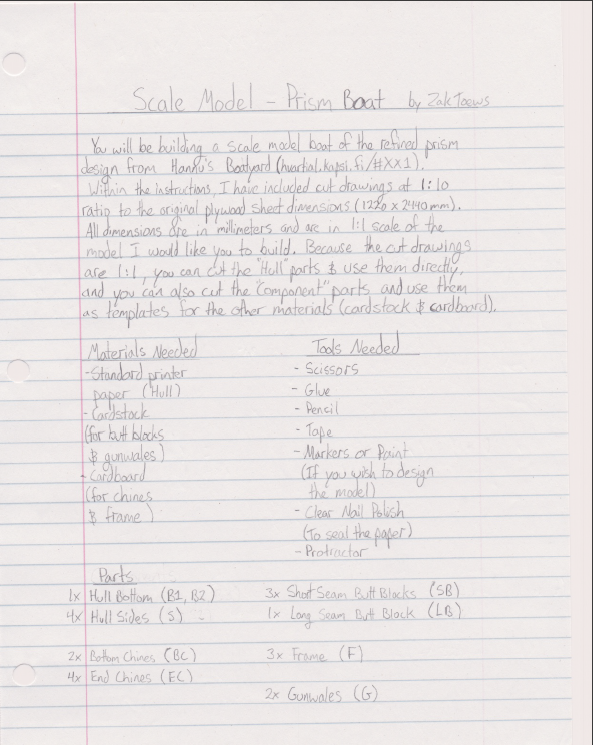 Scale Model - Prism Boat by Zak Toews
You will be building a scale model boat of the refined prism
design from Hannu's Boatyard (hvartial.kapsi.fi/#XX1).
Within the instructions, I have included cut drawings at 1:10
ratio to the original plywood sheet dimensions (1220 x 2440mm).
All dimensions are in millimeters and are in 1:1 scale of the
model I would like you to build. Because the cut drawings
are 1:1, you can cut the "Hull" parts & use them directly,
and you can also cut the "Component" parts and use them
as templates for the other materials (cardstock & cardboard).
Materials Needed
-Standard printer
paper (Hull)
-Cardstock
(for butt blocks
& gunwales)
-Cardboard
(for chines
& frame)
Tools Needed
- Scissors
- Glue
- Pencil
- Tape
- Markers or Paint
(If you wish to design
the model)
- Clear Nail Polish
(To seal the paper)
- Protractor
Parts
1x Hull Bottom (B1, B2)
4x Hull Sides (S)
2x Bottom Chines (BC)
4x End Chines (EC)
3x Short Seam Butt Blocks (SB)
1x Long Seam Butt Block (LB)
3x Frame (F)
2x Gunwales (G)